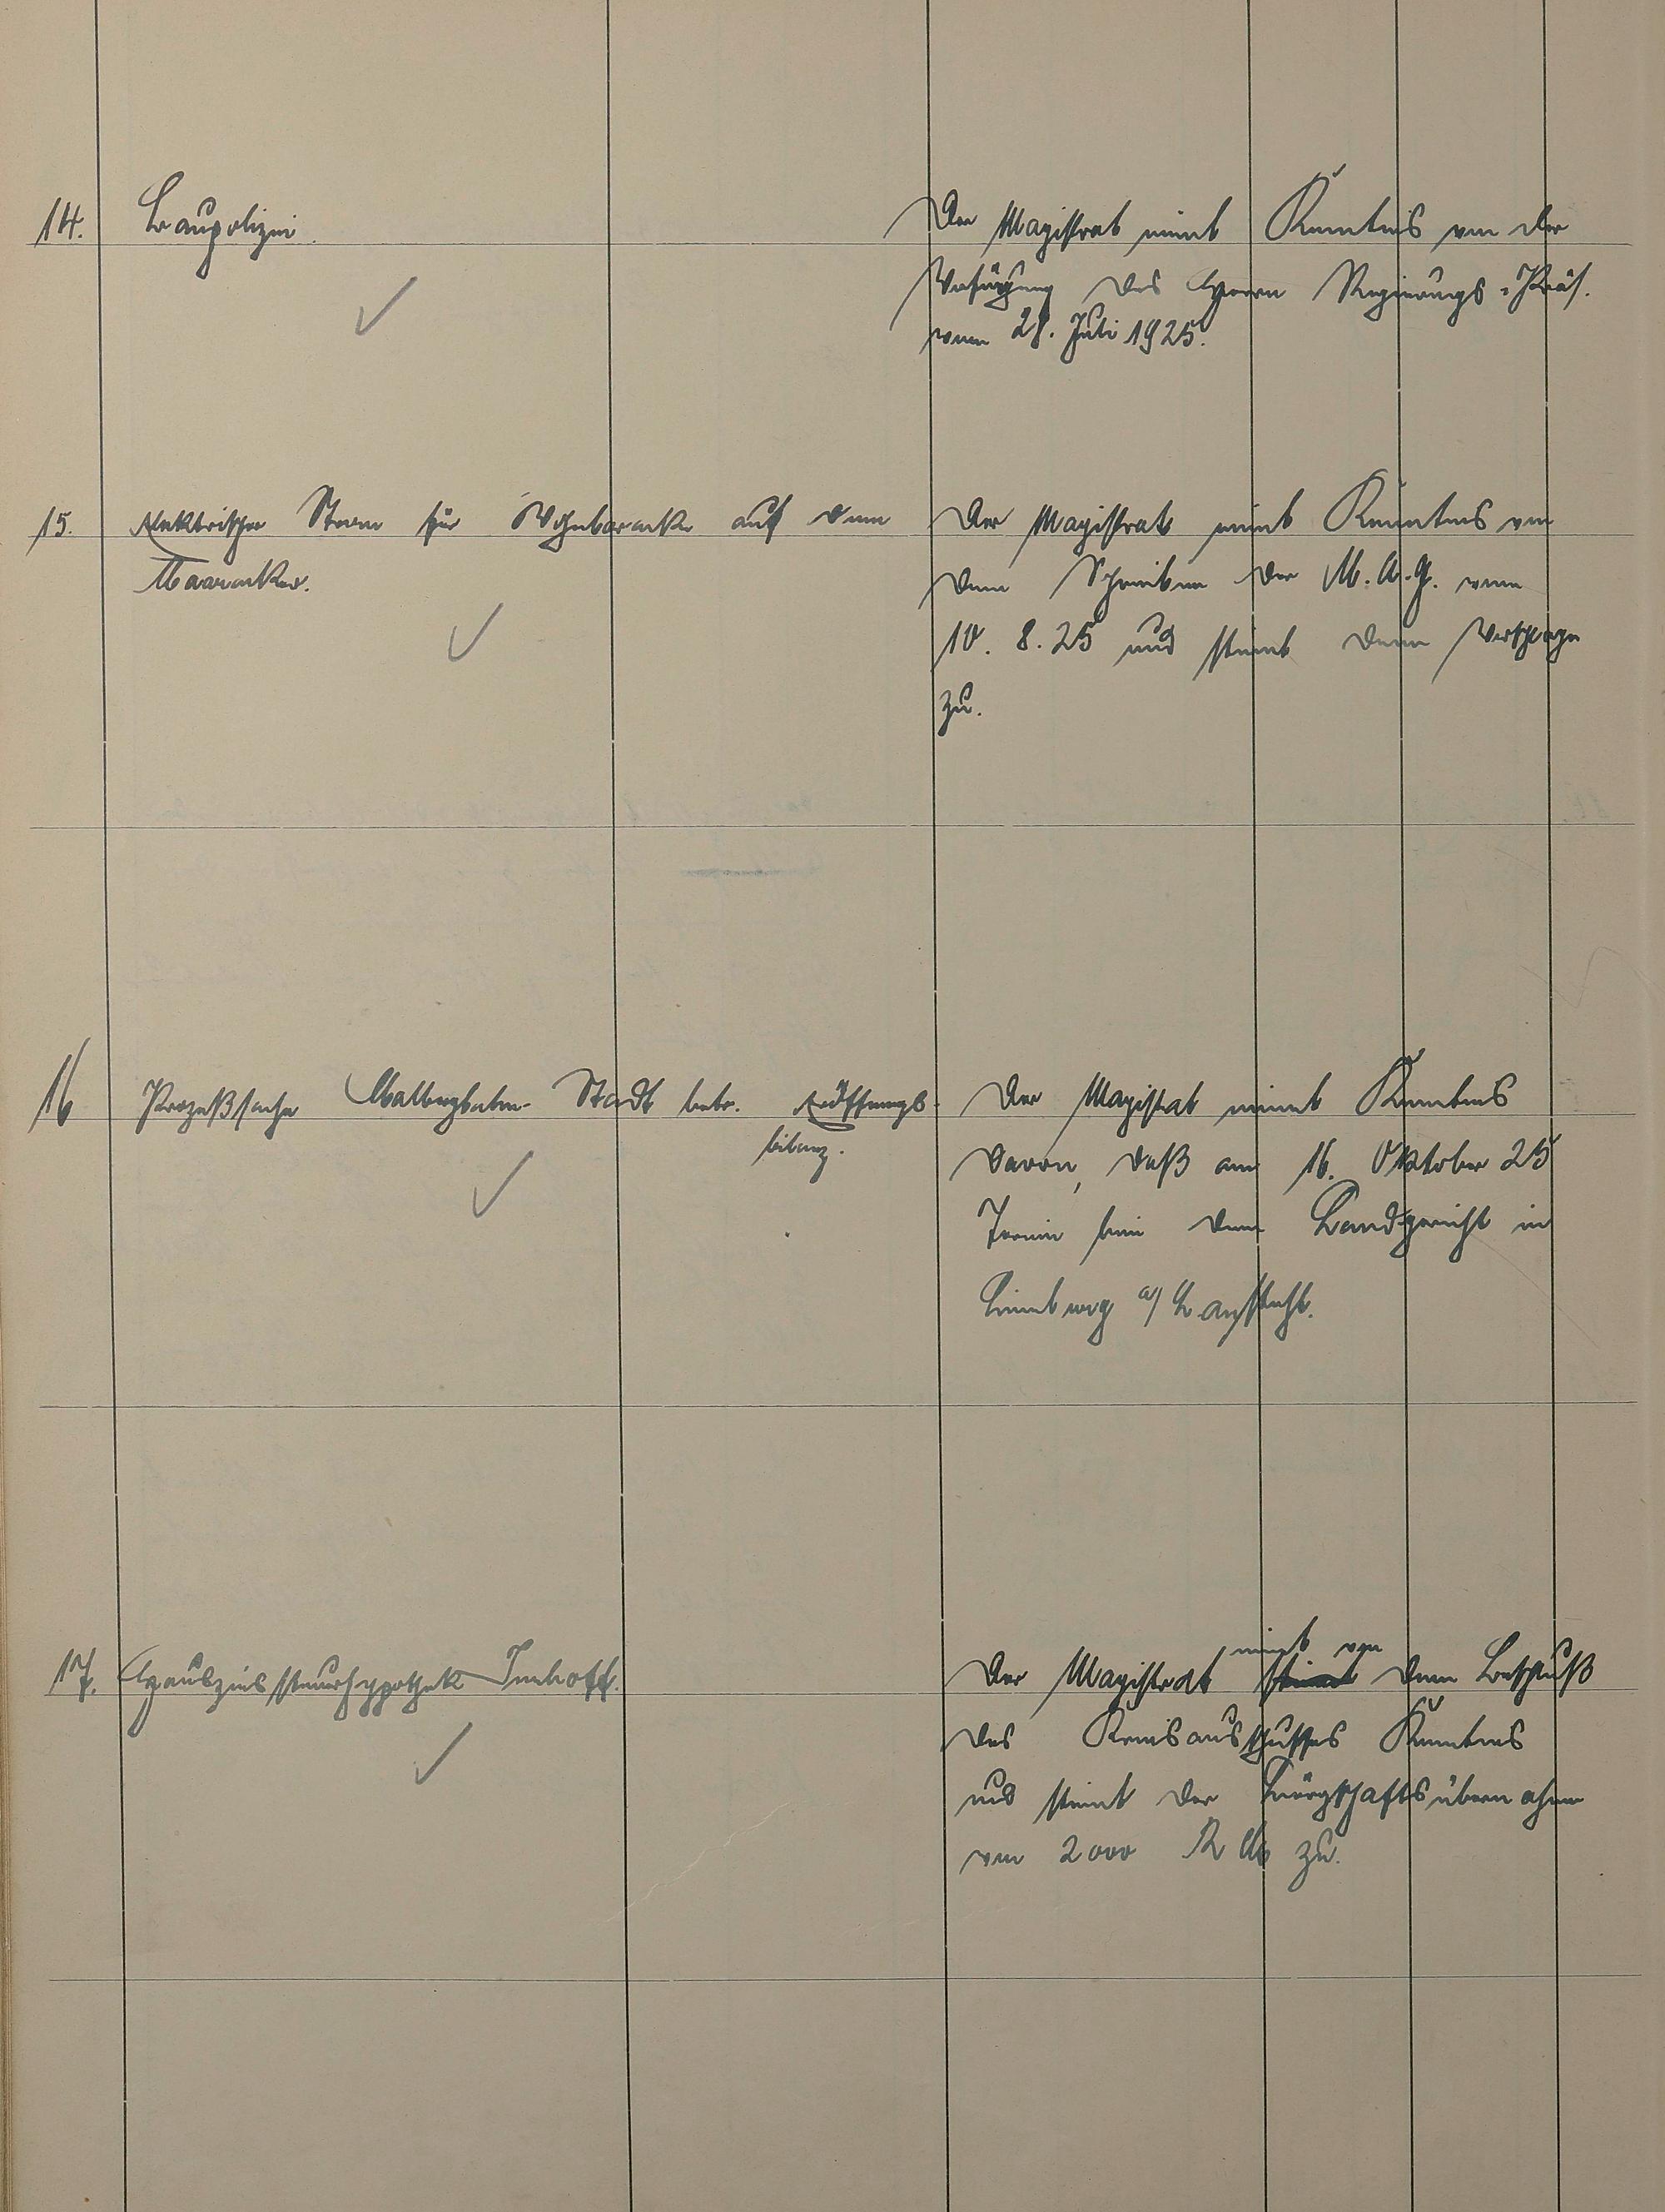 14. Baupolizei.
Der Magistrat nimt Kenntnis von der
Verfügung des Herrn Regierungs-Präs.
vom 28. Juli 1925.
15. Elektrischer Strom für Wohnbaracke auf dem
Maaracker.
Der Magistrat nimt Kenntnis von
dem Schreiben der M.K.G. vom
10. 8. 25 und stimt dem Vorschlage
zu.
16 Prozeßsache Malbergbahn-Stadt betr. Eröffnungs-
bilanz.
Der Magistrat nimt Kenntnis
davon, daß am 16. Oktober 25
Termin beim dem Landgericht in
Limburg a/L. ansteht.
17. Hauszinssteuerhypothek Imhoff.
nimt von
Der Magistrat stimt dem Beschluß
des Kreisausschusses Kenntnis
und stimt der Bürgschaftsübernahme
von 2000 RM zu.